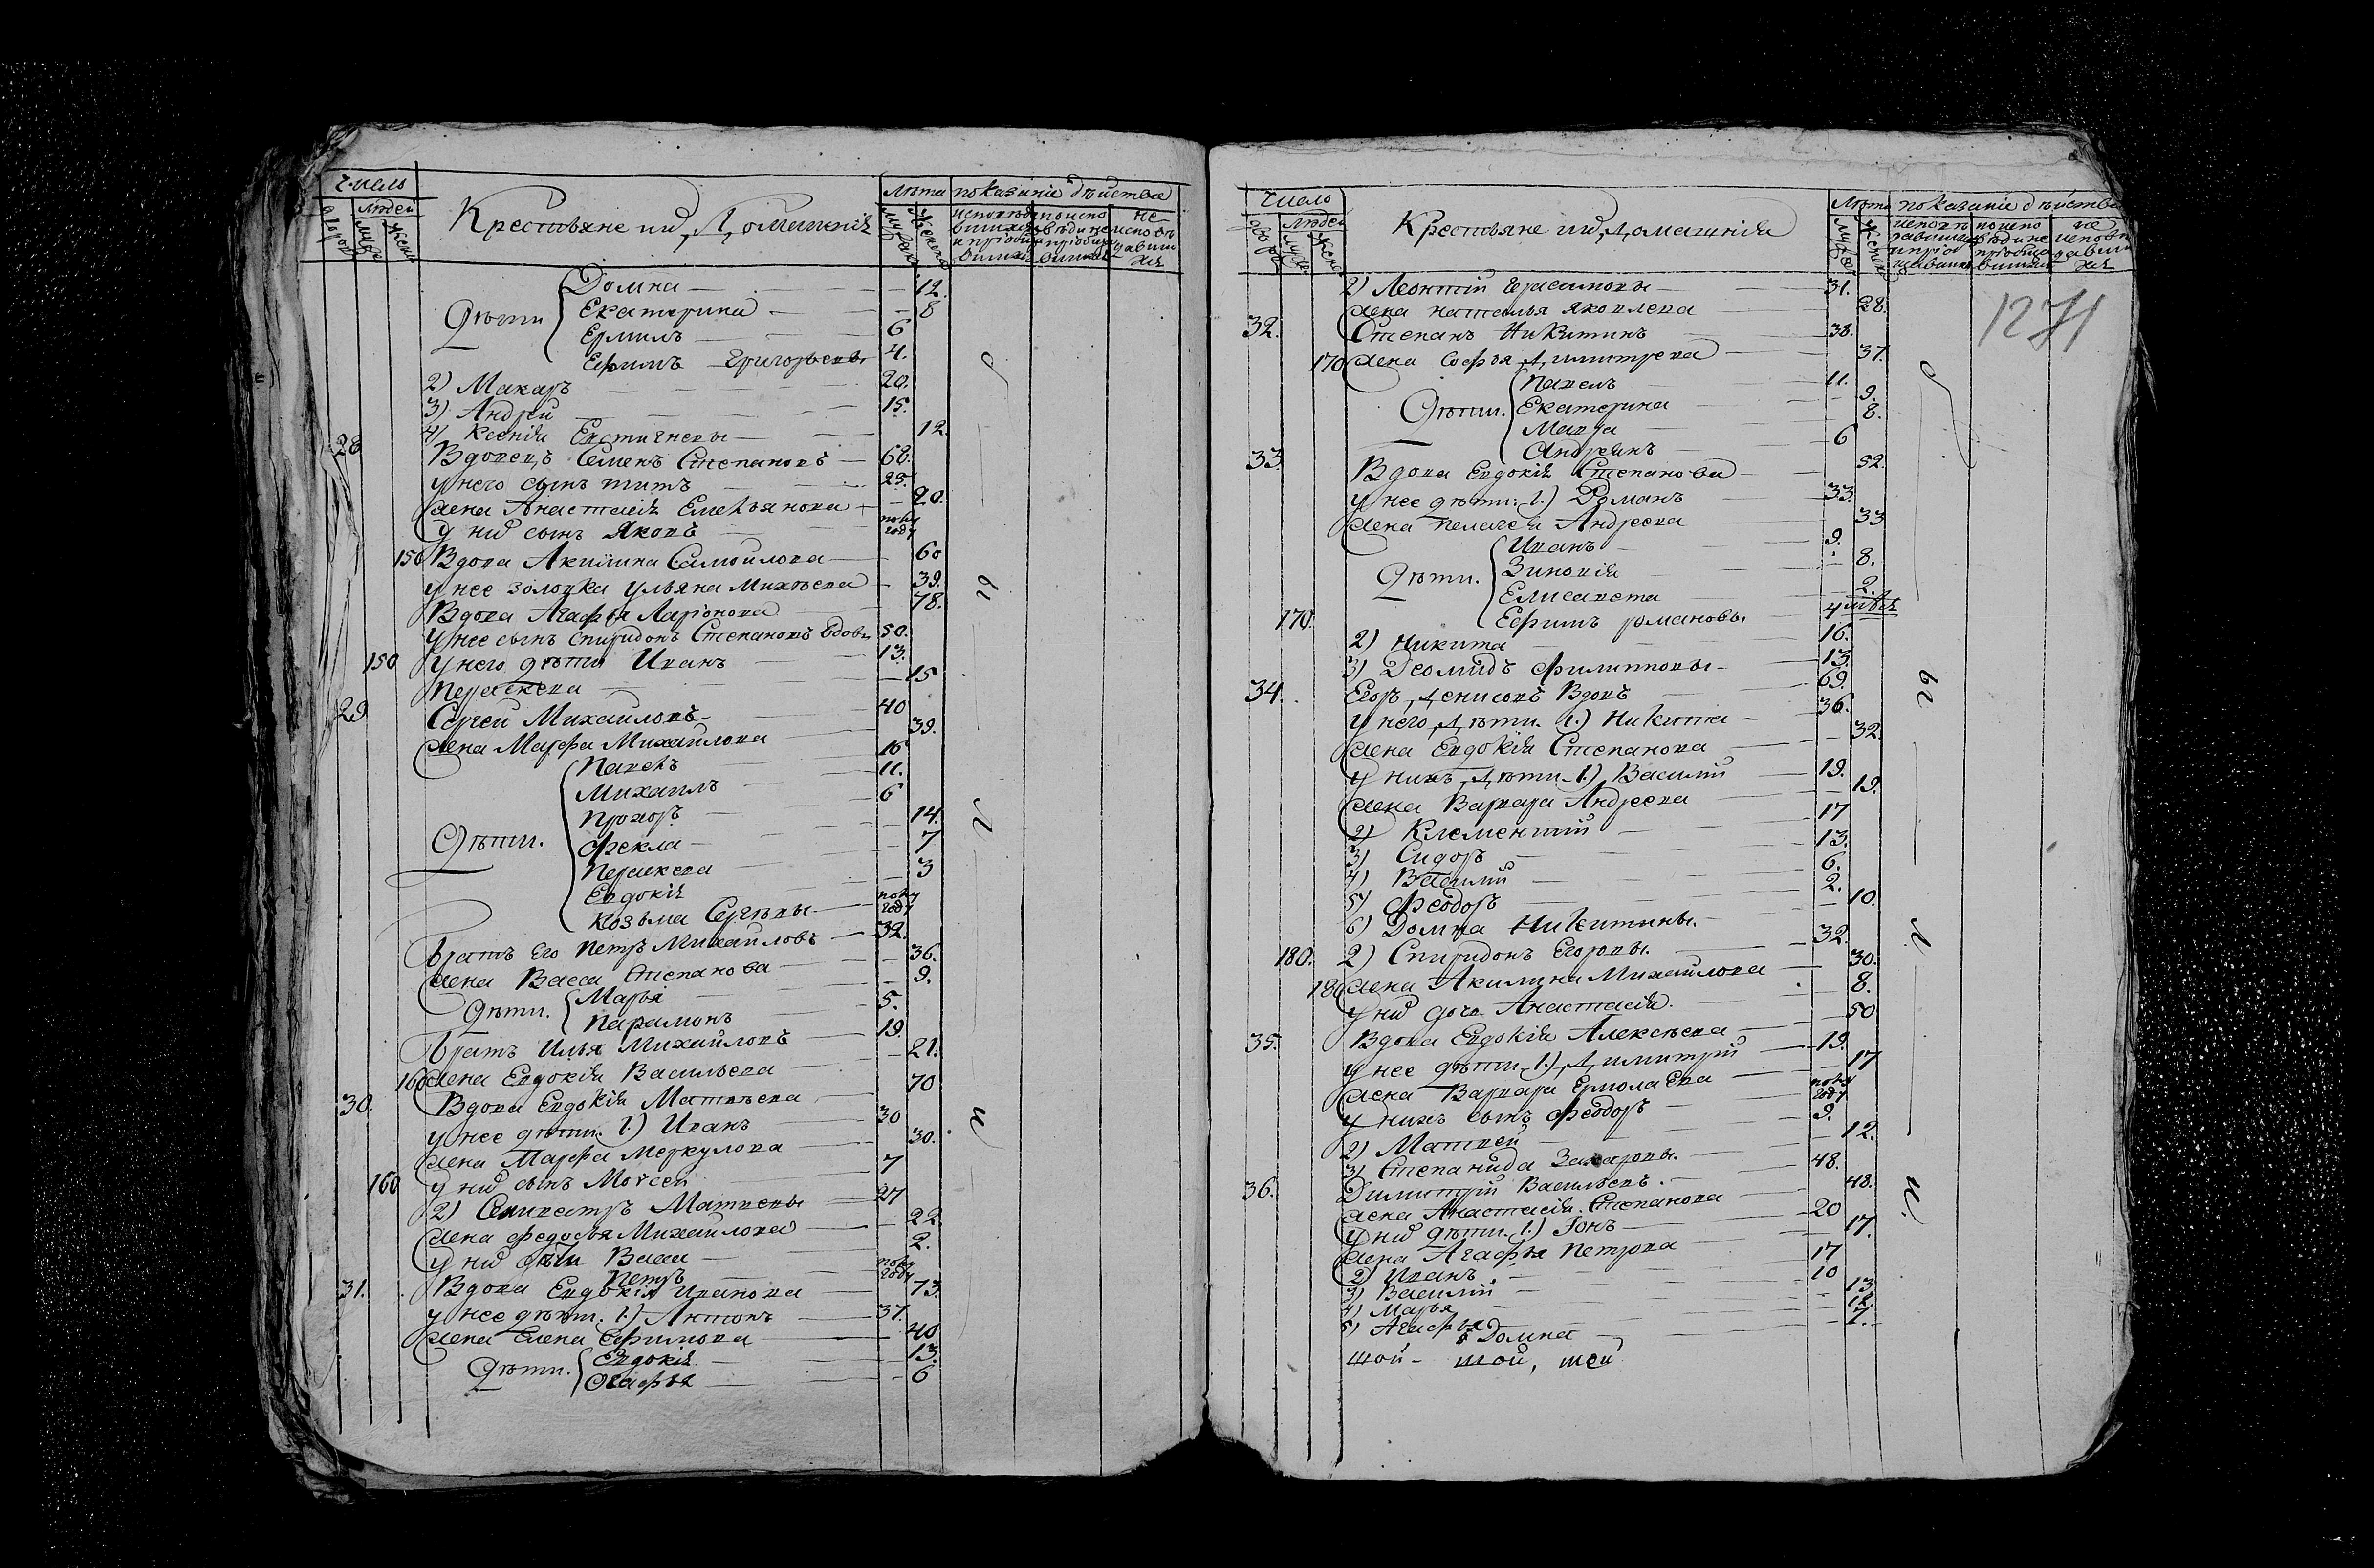 Число
Людей
Крестьяне их Домашнія
Лѣта
показаніе дѣйства
Дѣти
Домна 12.
Екатерина 8
Ермилъ 6
Ефимъ Григорьевы 4.
2) Макаръ 20.
3) Андрей 15.
4) Ксенія Евстигневы 12.
28 Вдовецъ Семенъ Степановъ 68.
у него сынъ титъ 25.
жена Анастасія Емельянова 20.
у них сынъ Яковъ полу году
150 Вдова Акилина Самойлова 60
у нее золовка Ульяна Михѣева 39.
Вдова Агафья Ларіонова 78.
У нее сынъ Спиридонъ Степановъ вдовъ 50.
150 у него дѣти Иванъ 13.
Параскева 15
29 Сергей Михайловъ 40
жена Марфа Михайлова 39.
Дѣти.
Павелъ 16
Михаилъ 11.
Прохоръ 6
Фекла 14.
Параскева 7
Евдокія 3
Козьма Сергѣевы полу году
братъ Его Петръ Михайловъ 32.
жена Васса Степанова 36.
Дѣти.
Марья 9.
Парамонъ 5.
братъ Илья Михайловъ 19.
160 жена Евдокія Васильева 21.
30. Вдова Евдокія Матвѣева 70
у нее дѣти. 1.) Иванъ 30
жена Марфа Меркулова 30.
160 у них сынъ Моѵсей 7
2) Селиверстъ Матвеевы 27
жена Федосья Михайлова 22.
у них дѣти Васса 2.
Петръ полу году
31. Вдова Евдокія Иванова 73.
у нее дѣти. 1.) Антонъ 37.
жена Елена Ефимова 40
Дѣти.
Евдокія 13.
Агафья 6
Число
Людей
Крестьяне их Домашнія
Лѣта
показаніе дѣйства
1271
2) Леонтій Герасимовы 31.
жена наталья Яковлева 28.
32. Степанъ Никитинъ 38.
170 жена Софья Димитрева 37.
Дѣти.
Павелъ 11.
Екатерина 9.
Марѳа 8.
Андреянъ 6
33. Вдова Евдокія Степанова 52.
у нее дѣти: 1.) Романъ 33.
жена Пелагея Андреева 33
Дѣти.
Иванъ 9.
Зиновія 8.
Елисавета 2.
170. Ефимъ романовы. 4 мѣся
2) Никита 16.
3) Деомидъ Филипповы 13.
34. Егоръ Денисовъ Вдовъ 69.
у него Дѣти. 1.) Никита 36.
жена Евдокія Степанова 32.
у нихъ Дѣти 1.) Василій 19.
жена Варвара Андреева 19.
2) Климентий 17
3) Сидоръ 13.
4) Василий 6.
5) Феодоръ 2.
6) Домна Никитины. 10.
180. 2) Спиридонъ Егоровы. 32.
180 жена Акилина Михайлова 30.
у них дочь Анастасія. 8.
35. Вдова Евдокія Алексѣева 50
у нее дѣти 1.) Димитрій 19.
жена Варвара Ермолаева 17
у нихъ сынъ Феодоръ полу году
2) Матвей 9.
3) Степанида Захаровы. 12.
36. Димитрій Васильевъ. 48.
жена Анастасія Степанова 48.
у них дѣти. 1.) Іонъ 20
жена Агафья Петрова 17.
2) Иванъ 17
3) Василій 10
4) Марья 13
5) Агафья 12.
6 Домна 7.
той- той, той